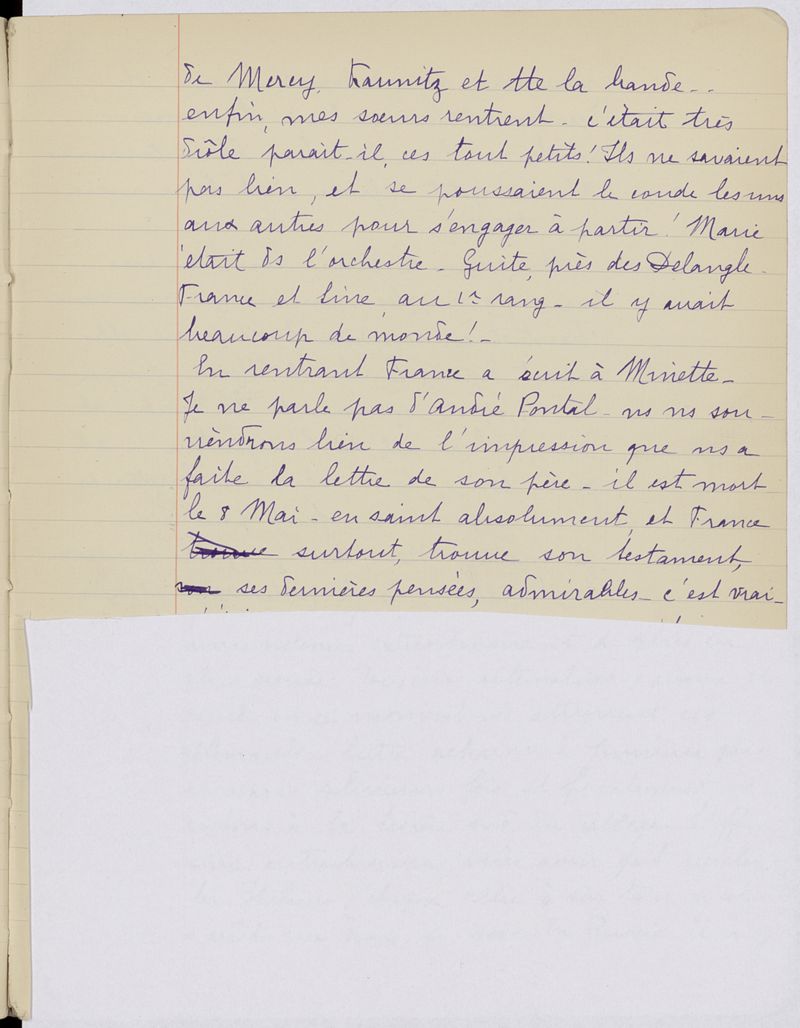 de Mercy, Kaunitz et tte la bande..
enfin, mes sœurs rentrent - c'était très
drôle parait-il, ces tout petits! Ils ne savaient
pas bien, et se poussaient le coude les uns
aux autres pour s'engager à partir! Marie
était ds l'orchestre - Guite, près des Delangle -
France et Line, au 1er rang - il y avait
beaucoup de monde! -
En rentrant France a écrit à Minette -
Je ne parle pas d'André Pontal - ns ns sou-
viendrons bien de l'impression que ns a
faite la lettre de son père - il est mort
le 8 Mai - en saint absolument, et France
trouve surtout, trouve son testament,
son ses dernières pensées, admirables - c'est vrai-